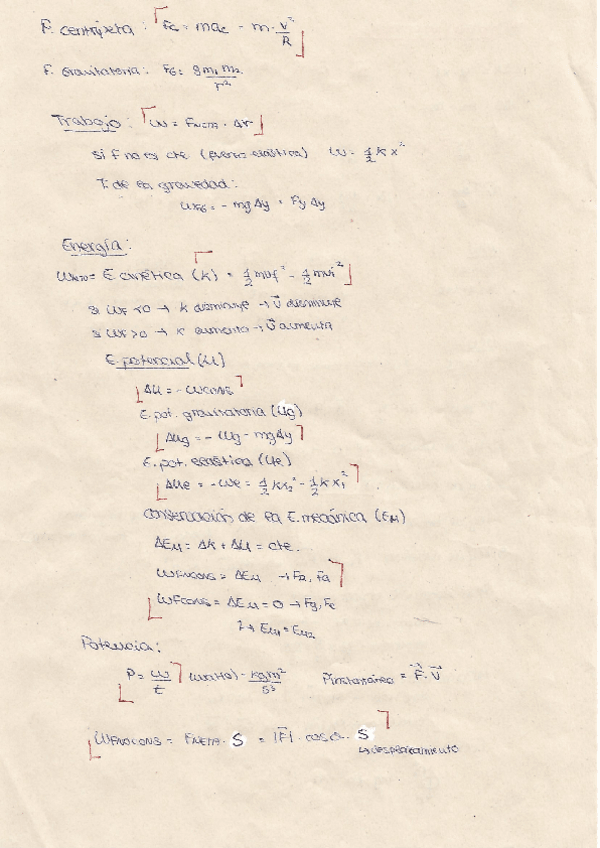 F. centrípeta: Fc = mac = m · v²/R
F. Gravitatoria: FG = g m₁ m₂ / r²
Trabajo: W = Fnem · Δr
Si F no es cte (fuerza elástica) W = 1/2 k x²
T. de la gravedad:
WFG = - mg Δy = Fy Δy
Energía:
E cinética (K) = 1/2 mvf² - 1/2 mvi²
si WF < 0 → K disminuye → v⃗ disminuye
si WF > 0 → K aumenta → v⃗ aumenta
E. potencial (U)
ΔU = - WCONS
E. pot. gravitatoria (Ug)
ΔUg = - Wg - mgΔy
E. pot. elástica (Ue)
ΔUe = - We = 1/2 kx₂² - 1/2 kx₁²
Conservación de la E. mecánica (EM)
ΔEM = ΔK + ΔU = cte.
WFNCONS = ΔEM → FR, Fa
WFCONS = ΔEM = 0 → Fg, Fe
↳ EM1 = EM2
Potencia:
P = W/t (watts) - kg m²/s³ Pinstantánea = F⃗ · v⃗
WFNOCONS = FNETA · S = |F⃗| · cos α · S
↳ desplazamiento